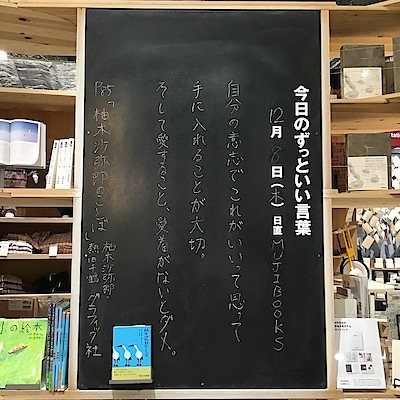 今日のずっといい言葉
12月8日(木)日直MUJIBOOKS
自分の意志でこれがいいって思って
手に入れることが大切。
そして愛すること、愛着がないとダメ。
P85「柚木沙弥郎のことば」
柚木沙弥郎
熱田千鶴
グラフィック社
の絵本